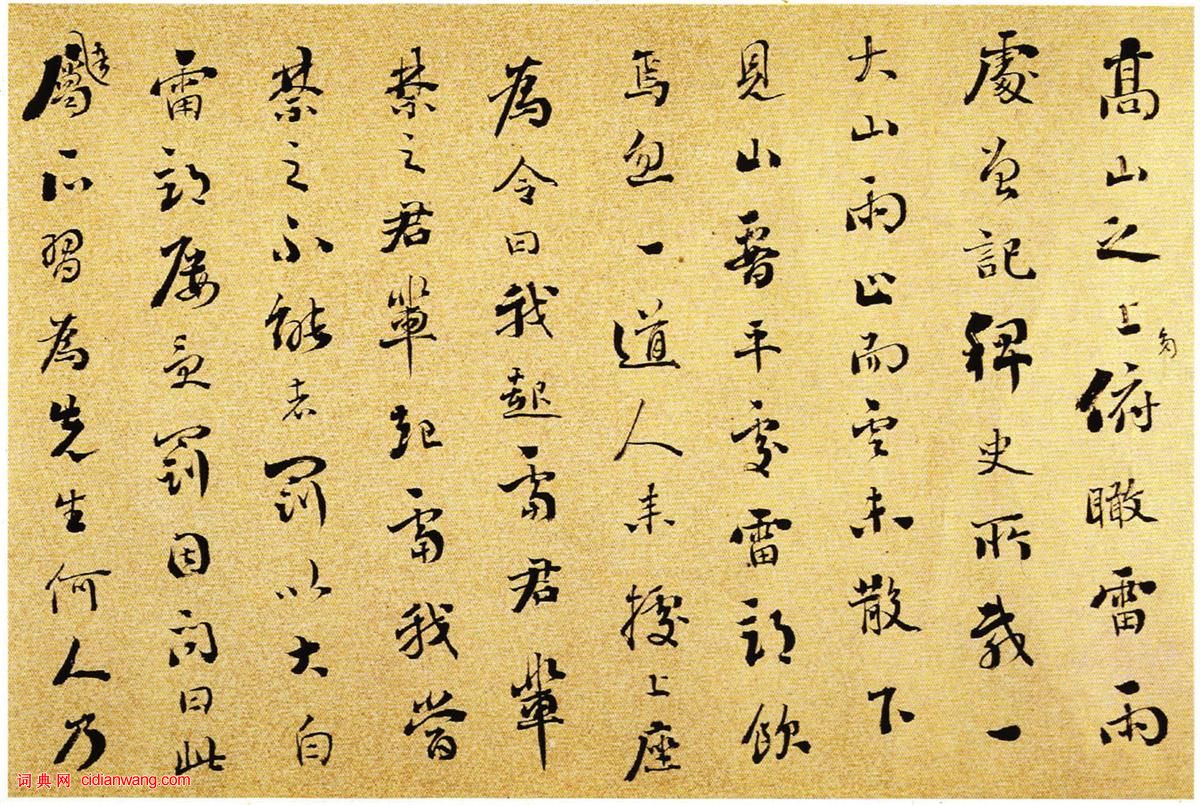 高山之上俯瞰雷雨
處曾記稗史所載一
大山雨止而雲未散下
見山脊平處雷部飲
焉忽一道人来據上座
為令曰我起雷君輩
禁之君輩起雷我當
禁之不能者罰以大白
雷部屡受罰因问曰此
属所習為先生何人乃
词典网 cidianwang.com